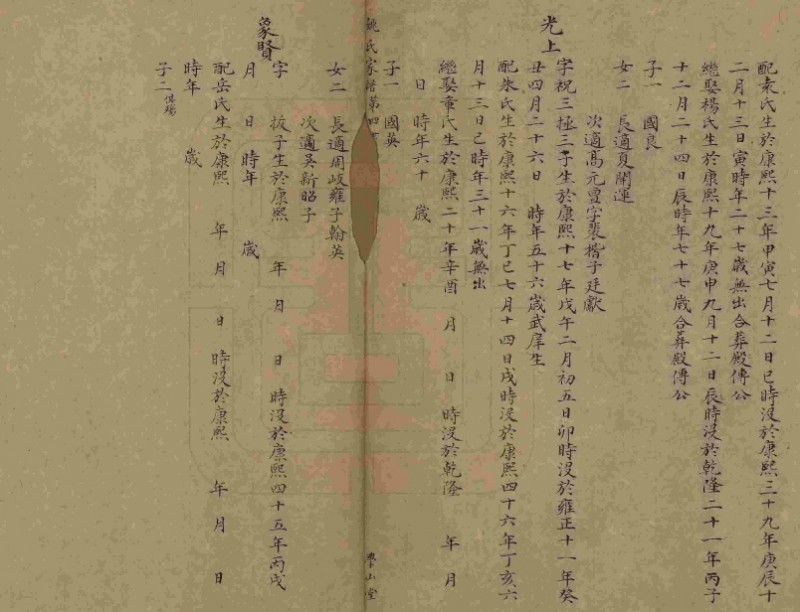 配秦氏生於康熙十三年甲寅七月十二日巳時沒於康熙三十九年庚辰十
二月十三日寅時年二十七歲無出合葬殿傳公
繼娶楊氏生於康熙十九年庚申九月十二日辰時沒於乾隆二十一年丙子
十二月二十四日辰時年七十七歲合葬殿傳公
子一 國良
女二 長適夏開運
次適高元 字裴楷子廷獻
光上
字祝三極三子生於康熙十七年戊午二月初五日卯時沒於雍正十一年癸
丑四月二十六日 時年五十六歲武庠生
配朱氏生於康熙十六年丁巳七月十四日戌時沒於康熙四十六年丁亥六
月十三日巳時年三十一歲無出
繼娶章氏生於康熙二十年辛酉 月 日 時沒於乾隆 年 月
日 時年六十 歲
子一 國英
姚氏家譜第四 學山堂
女二 長適周岐雍子翰英
次適吳新昭子
象賢
字 拔子生於康熙 年 月 日 時沒於康熙四十五年丙戌
月 日 時年 歲
配岳氏生於康熙 年 月 日 時沒於康熙 年 月 日
時年 歲
子二俱殤